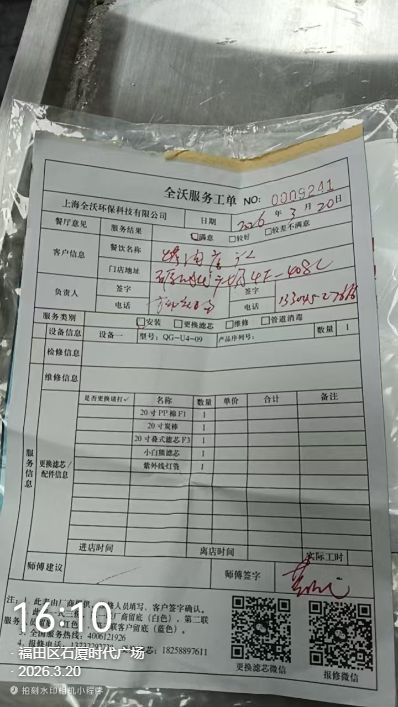 全沃服务工单 NO: 0009241
上海全沃环保科技有限公司 日期 2026年3月20日
餐厅意见 服务结果 满意 较好 较差不满意
客户信息 餐饮名称
门店地址 4F-408L
负责人 签字 签字
电话 电话
服务类别 安装 更换滤芯 维修 管道消毒
设备信息 设备一 型号: QG-U4-09 产品序列号: 数量 1
检修信息
维修信息
服务信息 更换滤芯/配件信息
是否更换请打✓ 名称 数量 单价 合计 备注
20寸PP棉F1 1
20寸炭棒 1
20寸叠式滤芯F3 1
小白熊滤芯 1
紫外线灯管 1
进店时间 离店时间 实际工时
师傅建议 师傅签字
注: 1. 此
人员填写、客户签字确认。
厂商留底(白色)、第二联
客留底(蓝色)。
3. 全国服务热线: 4006121926
18258897611
更换滤芯微信 报修微信
16:10
福田区石厦时代广场
2026.3.20
抢刻水印相机小程序